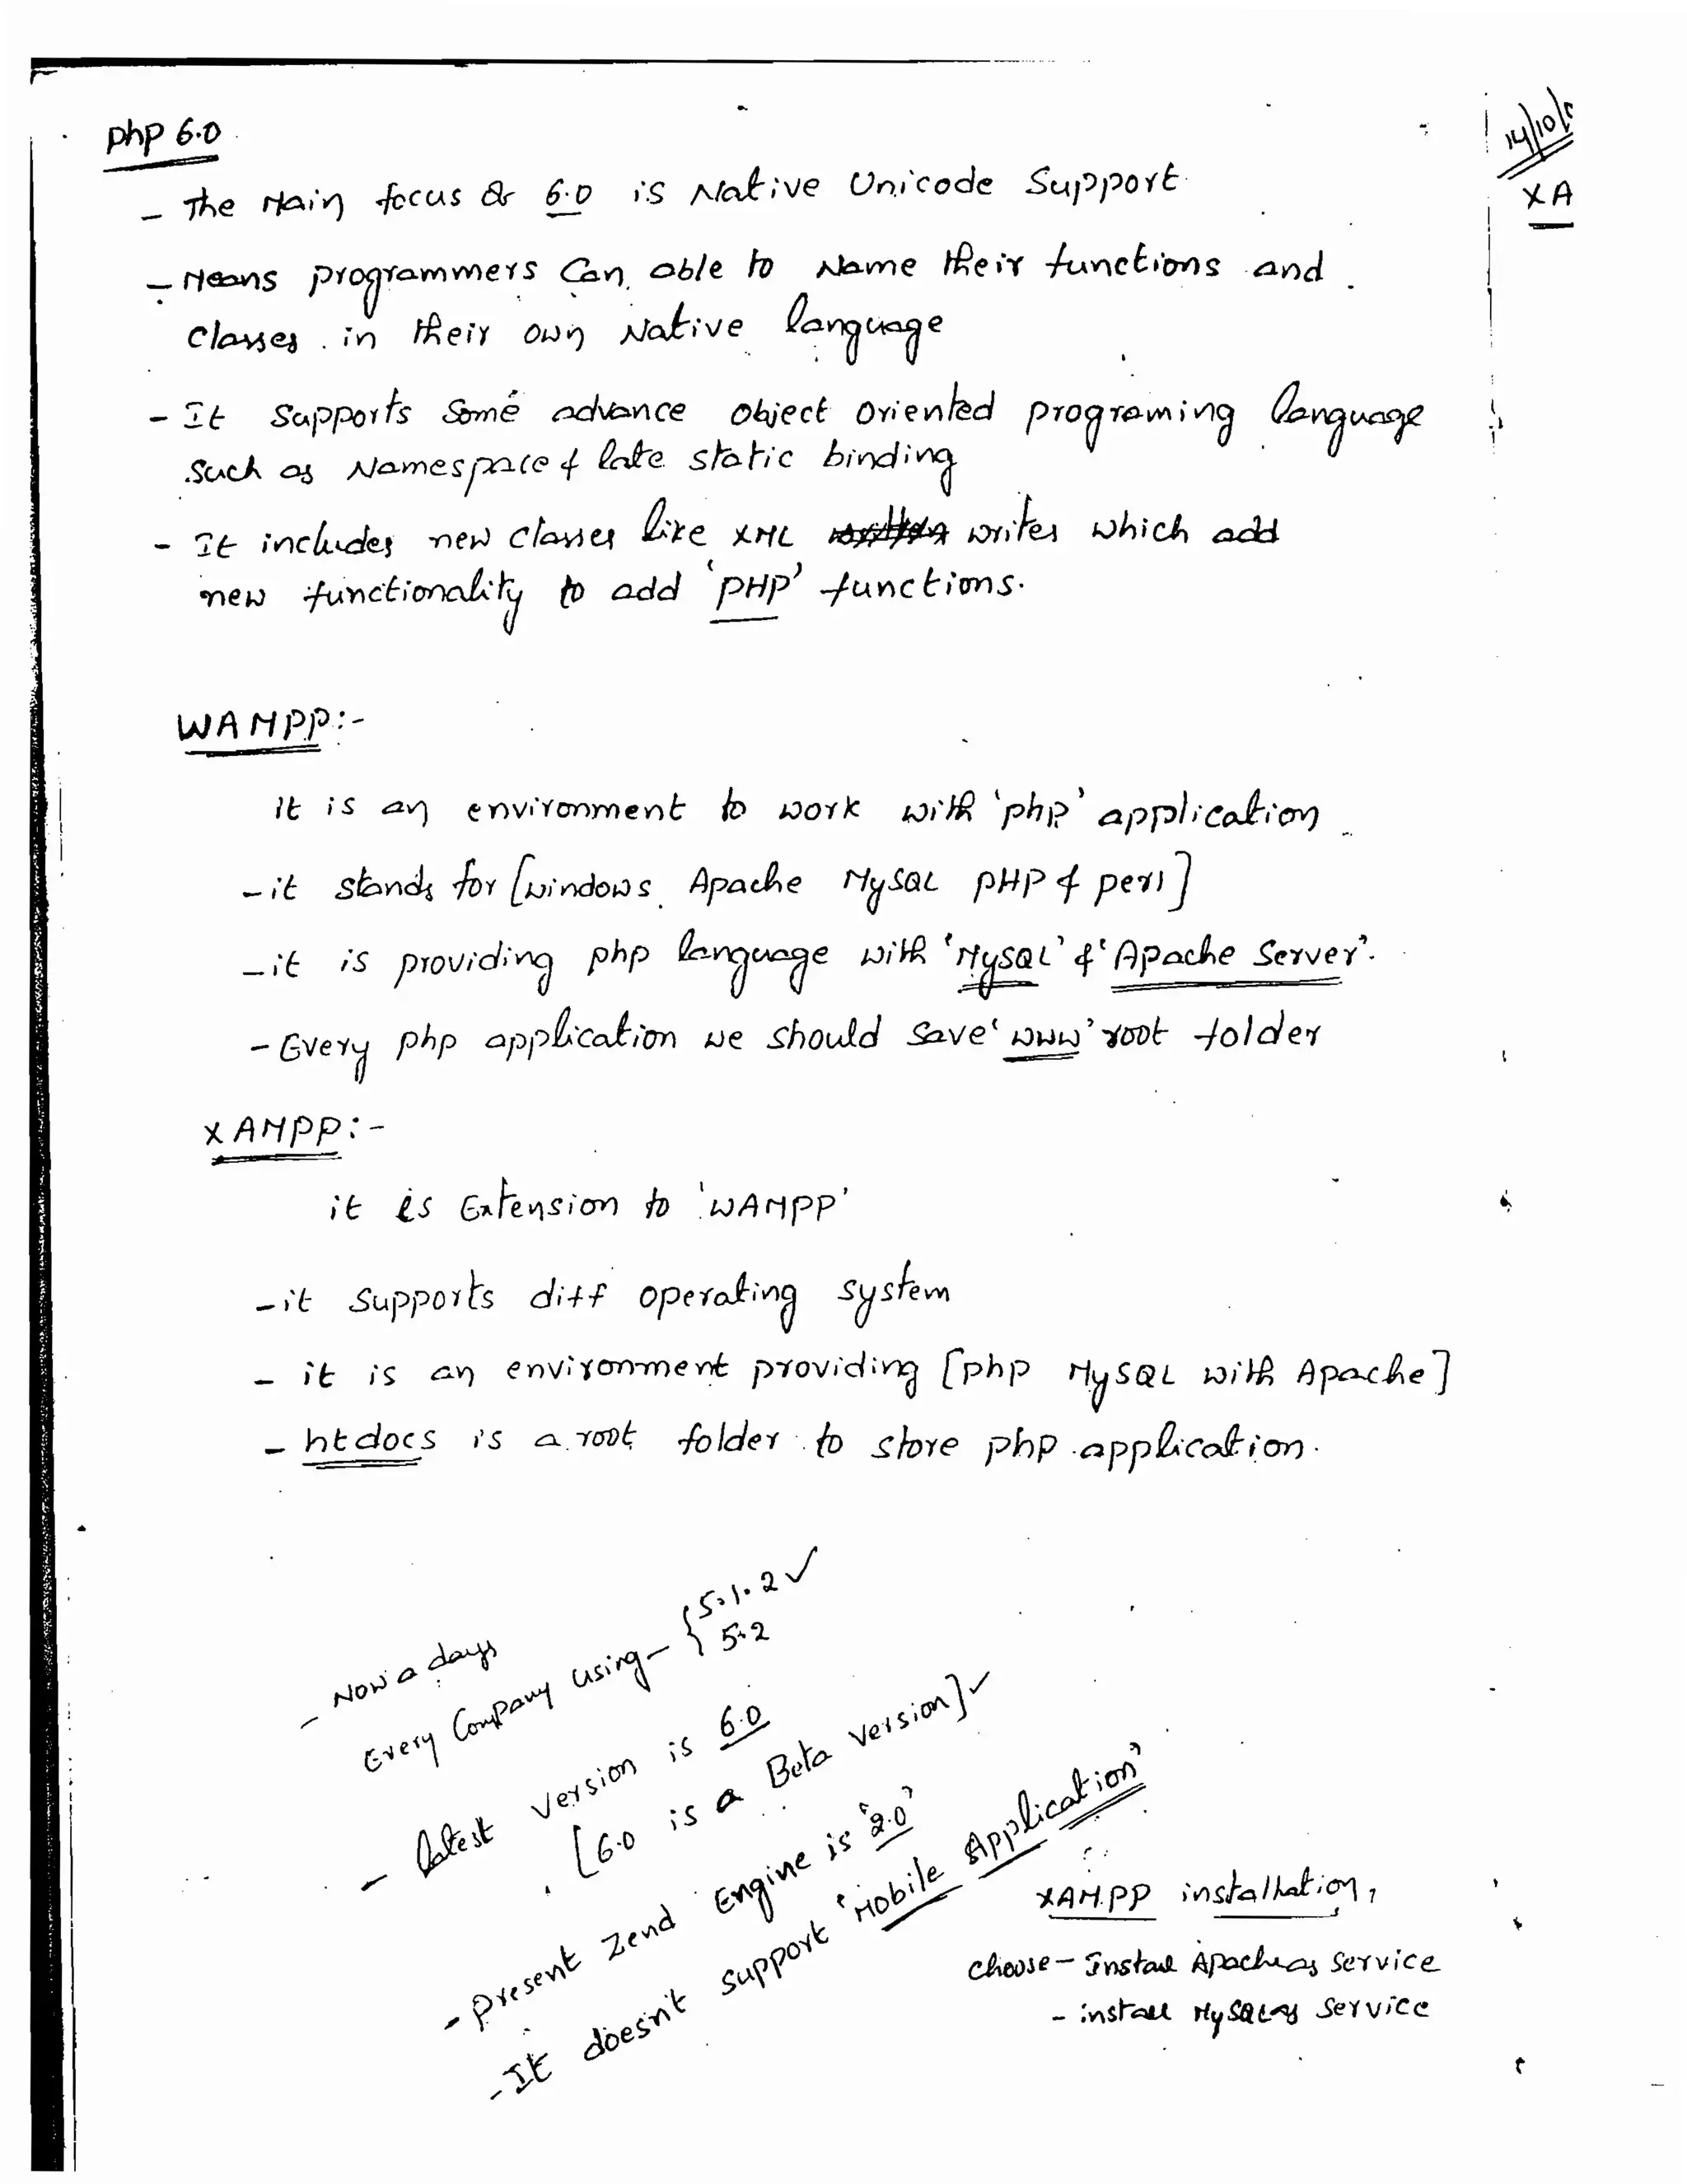 php 6.0
- The Main focus of 6.0 is Native Unicode Support
- Means programmers Can able to Name their functions and
classes in their own Native language
- It supports Some advance object oriented programing language
such as Namespace & late static binding
- It includes new classes like XML writes which add
new functionality to add 'PHP' functions.
WAMPP:-
it is an environment to work with 'php' application
- it stands for [windows Apache MySQL PHP & perl]
- it is providing php language with 'MySQL' & 'Apache Server'.
- Every php application we should save 'www' root folder
XAMPP:-
it is Extension to 'WAMPP'
- it supports diff operating system
- it is an environment providing [php MySQL with Apache]
- htdocs is a root folder to store php application.
- Now a days
Every Company using - { 5.1.2 ✓
5.2
- latest version is 6.0
[6.0 is a Beta version] ✓
- present Zend Engine is '2.0'
- It doesn't support 'Mobile Application'
XAMPP installation,
choose - Install Apache as service
- install MySQL as service
14/10/
XA